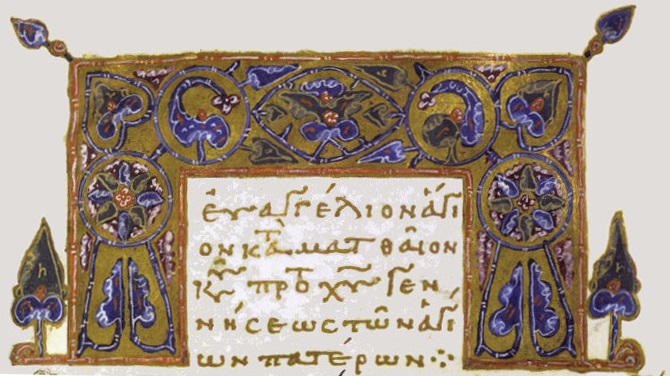 ἐυαγγέλιον ἅγι
ον κατ ματθαῖον
κυ πρὸ τ χυ γεν
νήσεως τῶν ἁγί
ων πατέρων ⁘